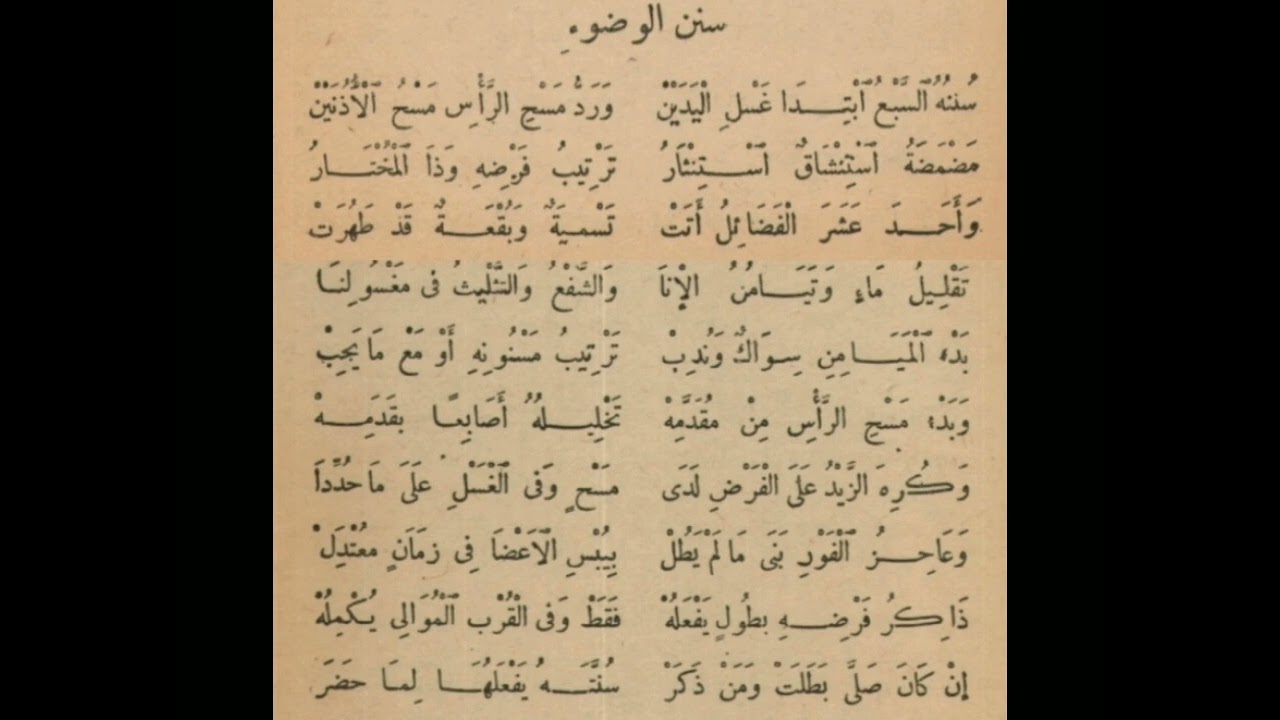 سنن الوضوء
سُنَنُهُ السَّبْعُ ابْتِدَا غَسْلِ الْيَدَيْنْ وَرَدُّ مَسْحِ الرَّأْسِ مَسْحُ الْأُذُنَيْنْ
مَضْمَضَةٌ اسْتِنْشَاقٌ اسْتِنْثَارُ تَرْتِيبُ فَرْضِهِ وَذَا الْمُخْتَارُ
وَأَحَدَ عَشَرَ الْفَضَائِلُ أَتَتْ تَسْمِيَةٌ وَبُقْعَةٌ قَدْ طَهُرَتْ
تَقْلِيلُ مَاءٍ وَتَيَامُنُ الْإِنَا وَالشَّفْعُ وَالتَّثْلِيثُ فى مَغْسُولِنَا
بَدْءُ الْمَيَامِنِ سِوَاكٌ وَنُدِبْ تَرْتِيبُ مَسْنُونِهِ أَوْ مَعْ مَا يَجِبْ
وَبَدْءُ مَسْحِ الرَّأْسِ مِنْ مُقَدَّمِهْ تَخْلِيلُهُ أَصَابِعًا بِقَدَمِهْ
وَكُرِهَ الزَّيْدُ عَلَى الْفَرْضِ لَدَى مَسْحٍ وَفى الْغَسْلِ عَلَى مَا حُدِّدَا
وَعَاجِزُ الْفَوْرِ بَنَى مَا لَمْ يَطُلْ بِيُبْسِ الْأَعْضَا فِى زَمَانٍ مُعْتَدِلْ
ذَاكِرُ فَرْضِهِ بِطُولٍ يَفْعَلُهْ فَقَطْ وَفى الْقُرْبِ الْمُوَالِى يُكْمِلُهْ
إِنْ كَانَ صَلَّى بَطَلَتْ وَمَنْ ذَكَرْ سُنَّتَهُ يَفْعَلُهَا لِمَا حَضَرَ